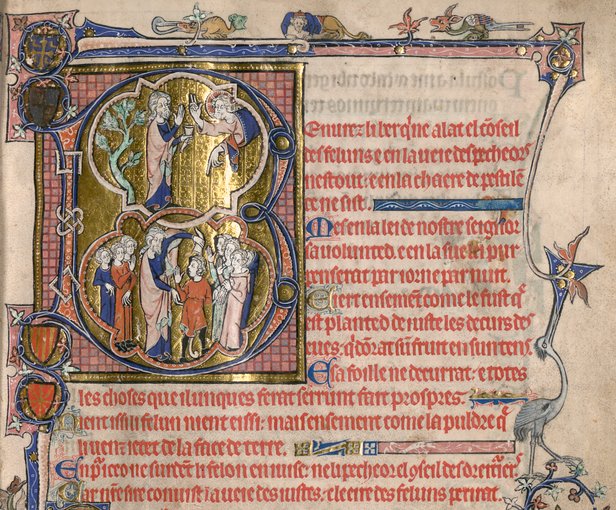 eneurez li ber q̃ ne alat el cõseil
des feluns: e en la ueie des pecheors
ne stout: e en la chaere de pestilẽ
ce ne sist.
Mes en la lei de nostre seignor
sa uolunted. e en la sue lei pur
penserat par iorne e par nuit.
E iert ensement come le fust q̃
est planted de iuste les decurs des
eues: q̃ dorrat sun fruit en sun tens.
E sa foille ne decurrat: e totes
les choses que il unques ferat serrunt fait prospres.
Nient issi u felun nient eissi: mais ensement come la puldre q̃
uenz iettet de la face de terre.
En pur ce ne surdent li felon en iuise: ne li pecheor el cõseil des dreituriers
Kar nostre sire cunuist la ueie des iustes, e le eire des feluns perirat.